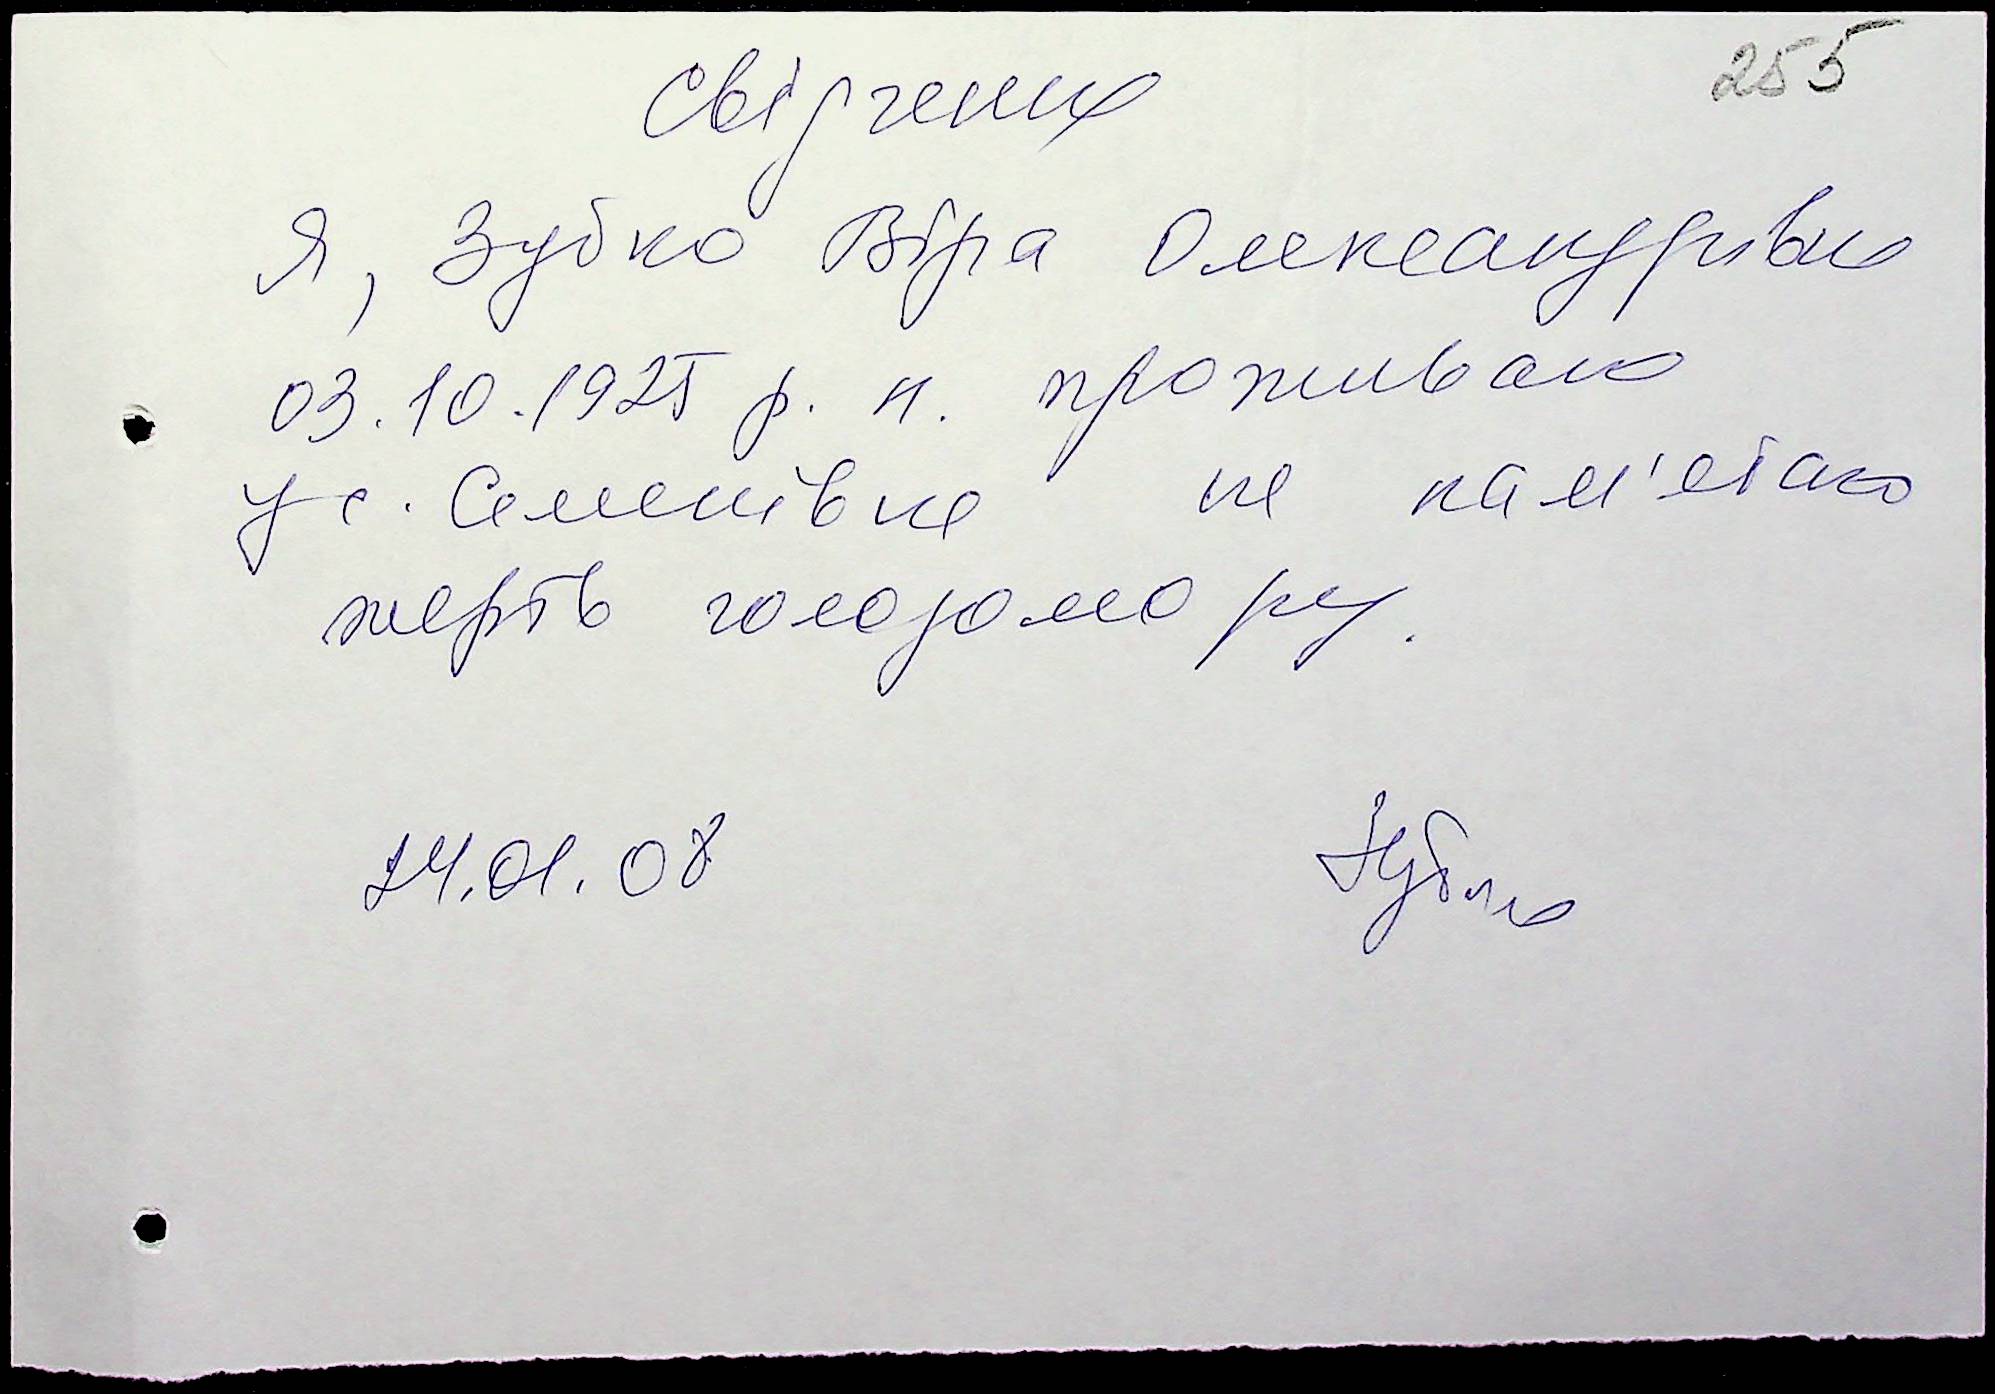 255
Свідчення
Я, Зубко Віра Олександрівна
03.10.1925 р. н. проживаю
у с. Семенівка не пам'ятаю
жертв голодомору.
24.01.08
Зубко